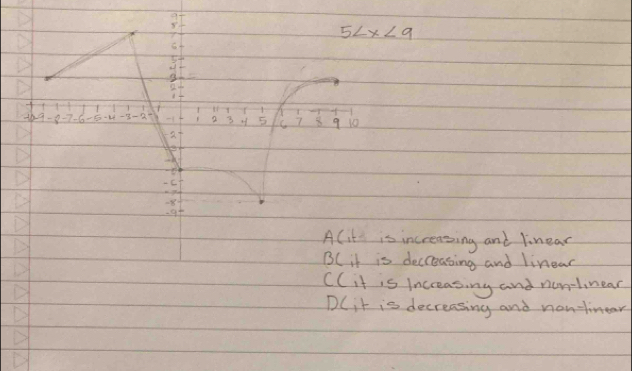 5<x<9
1 2 3 4 5 6 7 8 9 10
A( it is increasing and linear
B( it is decreasing and linear
C( it is Increasing and non-linear
D( it is decreasing and non-linear